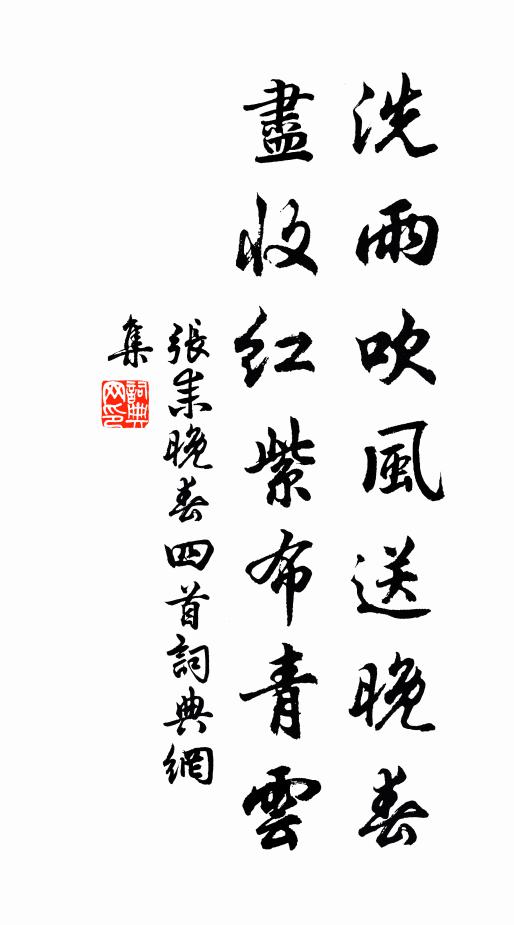 洗雨吹風送晚春
盡收紅紫布青雲
張耒晚春四首詞典網
集
詞典
网印